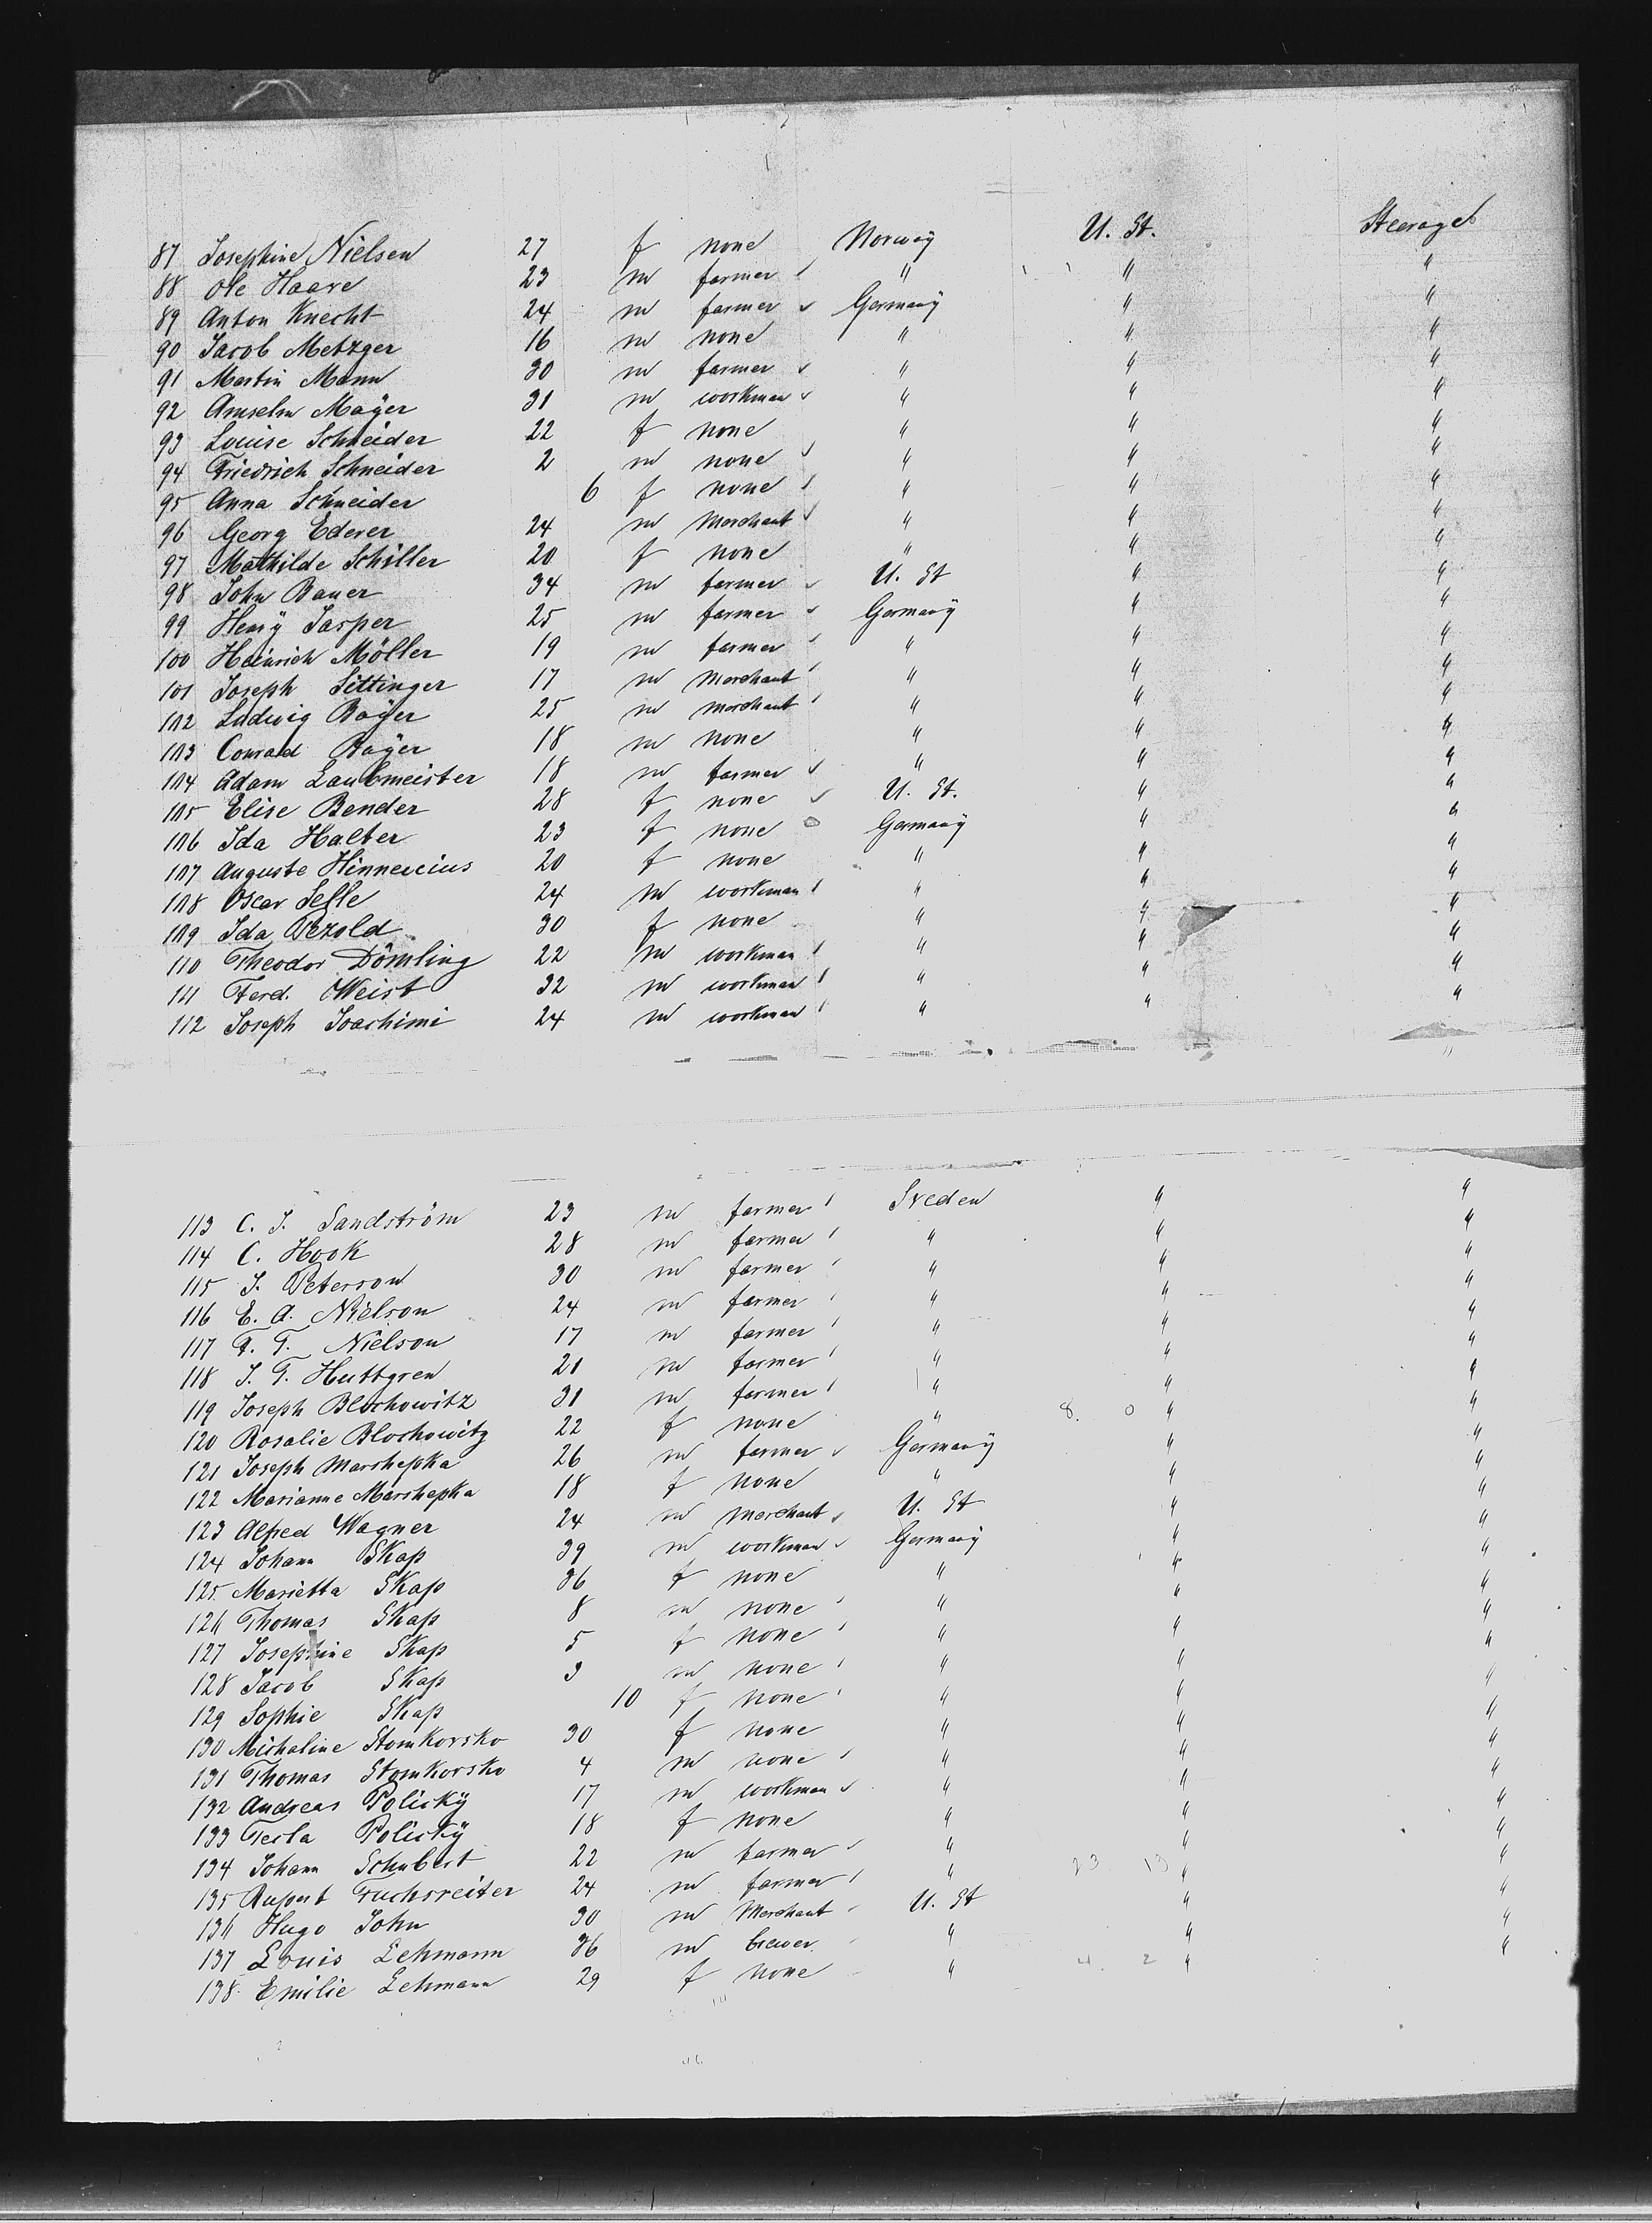 87 Josephine Nielsen 27 f none Norway U. St. Steerage
88 Ole Haare 23 m farmer " " "
89 Anton Knecht 24 m farmer Germany " "
90 Jacob Metzger 16 m none " " "
91 Martin Mann 30 m farmer " " "
92 Amselm Mayer 31 m workman " " "
93 Louise Schneider 22 f none " " "
94 Friedrich Schneider 2 m none " " "
95 Anna Schneider 6 f none " " "
96 Georg Ederer 24 m Merchant " " "
97 Mathilde Schiller 20 f none " " "
98 John Bauer 34 m farmer U. St " "
99 Henry Jasper 25 m farmer Germany " "
100 Heinrich Möller 19 m farmer " " "
101 Joseph Sittinger 17 m Merchant " " "
102 Ludwig Bayer 25 m merchant " " "
103 Conrad Bayer 18 m none " " "
104 Adam Laubmeister 18 m farmer " " "
105 Elise Bender 28 f none U. St. " "
106 Ida Halter 23 f none Germany " "
107 Auguste 20 f none " " "
108 Oscar Selle 24 m workman " " "
109 Ida Pezold 30 f none " " "
110 Theodor Dömling 22 m workman " " "
111 Ferd. Weist 32 m workman " " "
112 Joseph Joachimi 24 m workman " " "
113 C. J. Sandström 23 m farmer Sveden " "
114 C. Hook 28 m farmer " " "
115 J. Peterson 30 m farmer " " "
116 E. A. Nielson 24 m farmer " " "
117 F. T. Nielson 17 m farmer " " "
118 J. T. Huttgren 21 m farmer " " "
119 Joseph Blochowitz 31 m farmer " " "
120 Rosalie Blochowitz 22 f none " 8. 0 " "
121 Joseph Marshepka 26 m farmer Germany " "
122 Marianne Marshepka 18 f none " " "
123 Alfred Wagner 24 m Merchant U. St " "
124 Johann Skap 39 m workman Germany " "
125. Marietta Skap 36 f none " " "
126 Thomas Skap 8 m none " " "
127 Josephine Skap 5 f none " " "
128 Jacob Skap 3 m none " " "
129 Sophie Skap 10 f none " " "
130 Michaline Stomkorsko 30 f none " " "
131 Thomas Stomkorsko 4 m none " " "
132 Andreas Policky 17 m workman " " "
133 Tecla Policky 18 f none " " "
134 Johann Schubert 22 m farmer " " "
135 Rupert Fuchsreiter 24 m farmer " 23 13 " "
136 Hugo John 30 m Merchant U. St " "
137 Louis Lehmann 36 m brewer " " "
138. Emilie Lehmann 29 f none " 4. 2 " "